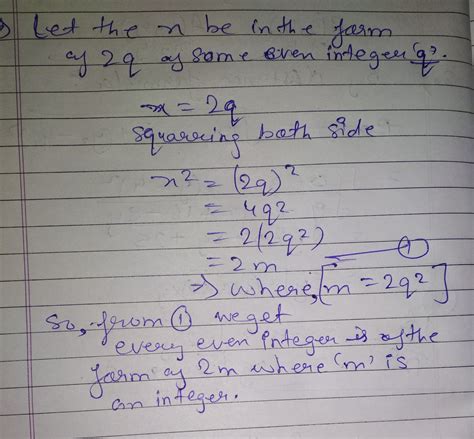 Let the n be in the form
of 2q of some even integer 'q'.
n = 2q
squarring both side
n² = (2q)²
= 4q²
= 2(2q²)
= 2m ——— ①
⇒ where, [m = 2q²]
So, from ① we get
every even integer is of the
form of 2m where 'm' is
an integer.